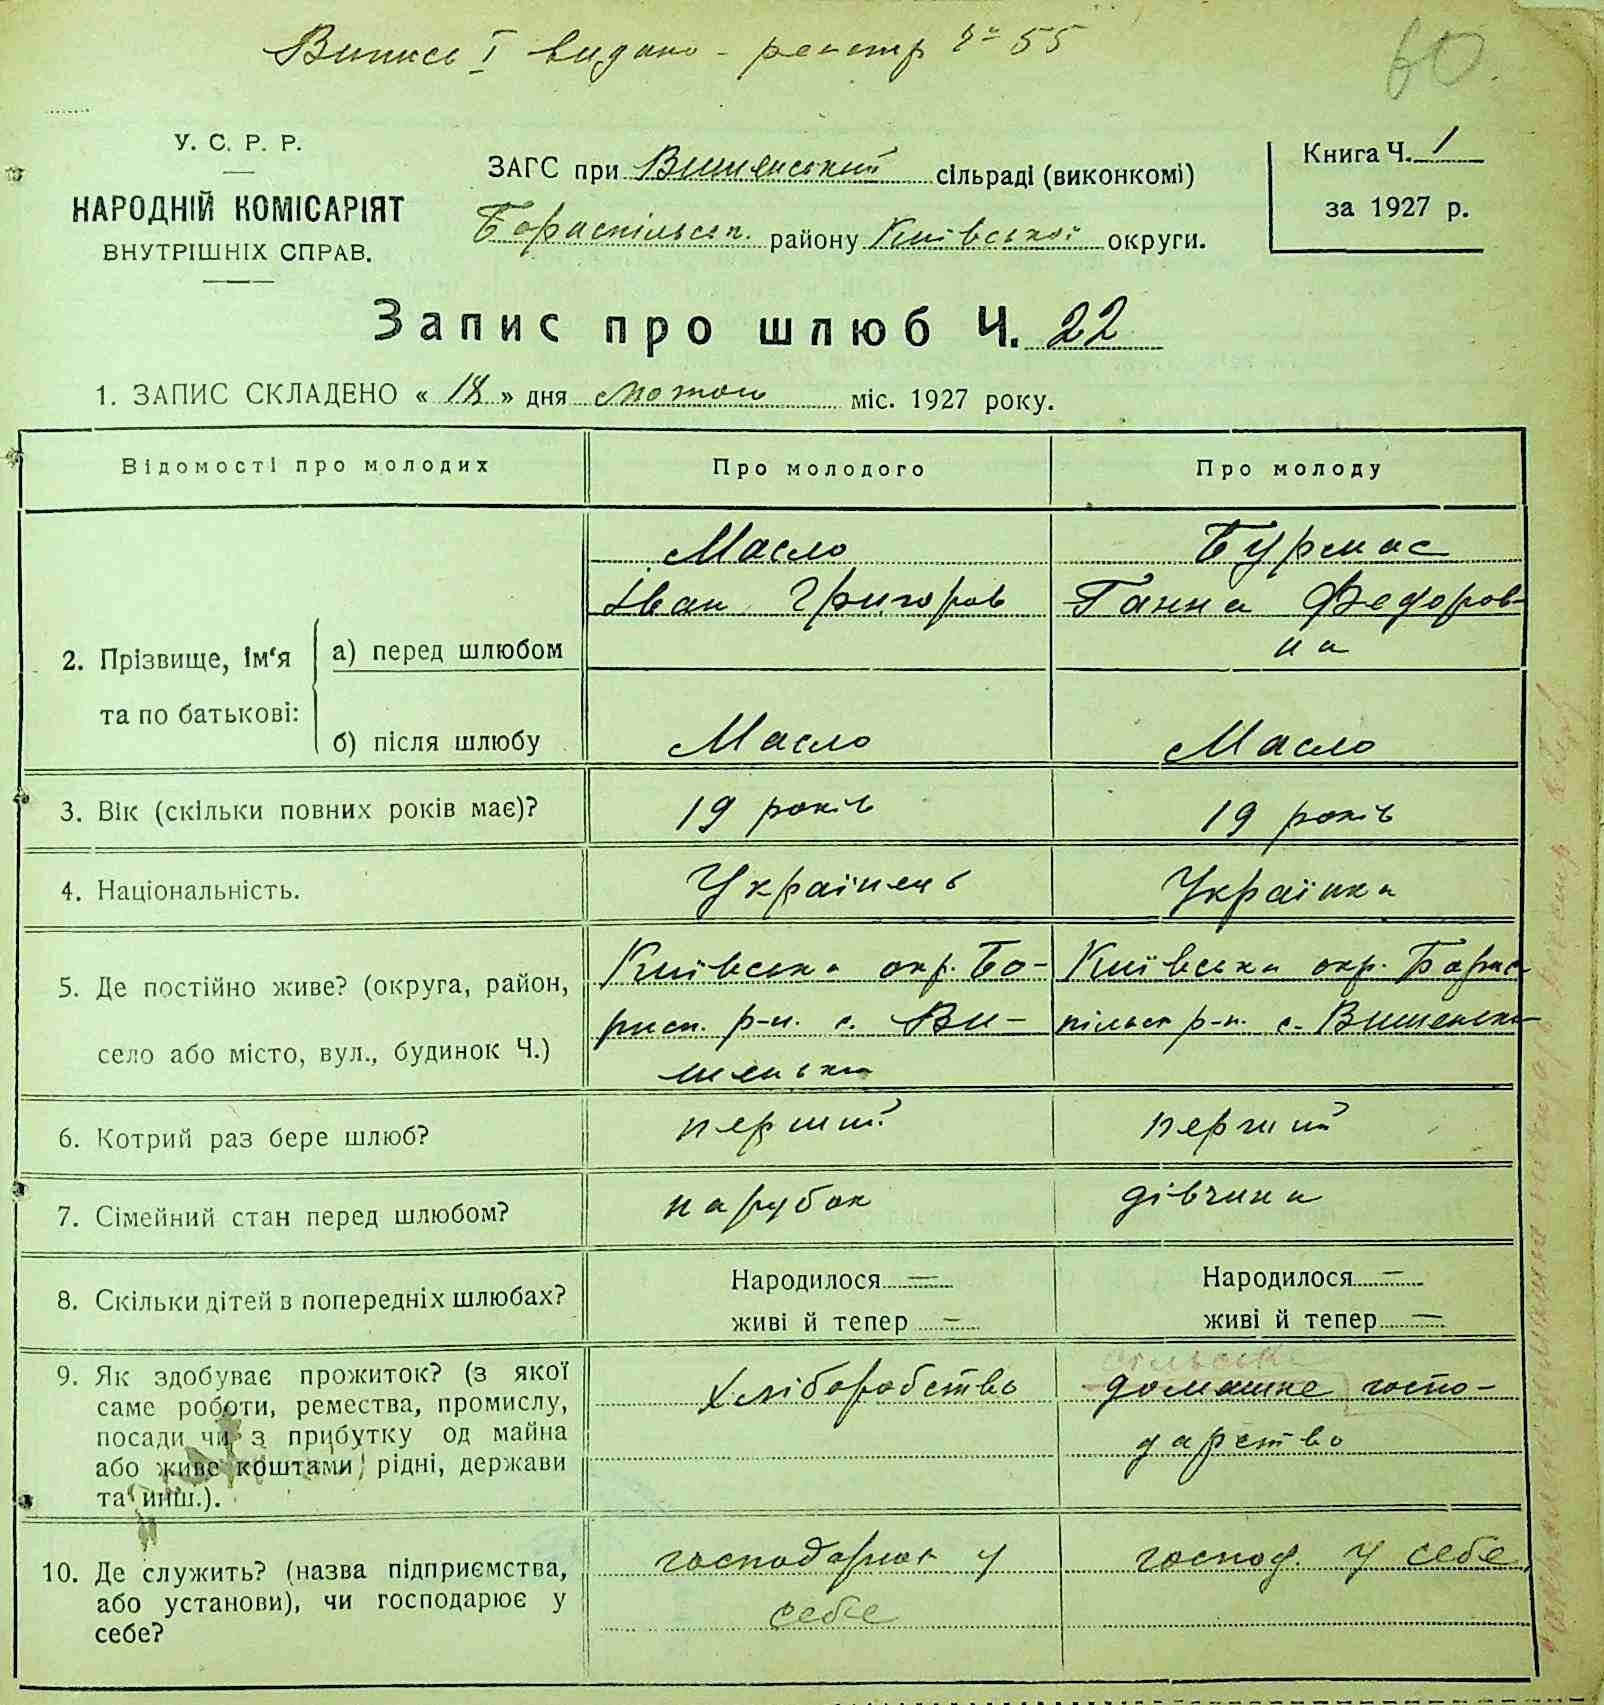 Випись I видано - реєстр № 55
60.
У. С. Р. Р.
НАРОДНІЙ КОМІСАРІЯТ
ВНУТРІШНІХ СПРАВ.
ЗАГС при Вишенський сільраді (виконкомі)
Бориспільськ. району Київської округи.
Книга Ч. 1
за 1927 р.
Запис про шлюб Ч. 22
1. ЗАПИС СКЛАДЕНО « 18 » дня лютого міс. 1927 року.
Відомості про молодих
Про молодого
Про молоду
2. Прізвище, ім'я та по батькові:
а) перед шлюбом
Масло
Іван Григоров
Бурмас
Ганна Федоров-
на
б) після шлюбу
Масло
Масло
3. Вік (скільки повних років має)?
19 років
19 років
4. Національність.
Українець
Українка
5. Де постійно живе? (округа, район,
село або місто, вул., будинок Ч.)
Київська окр. Бо-
рисп. р-н. с. Ви-
шеньки
Київська окр. Борис-
пільськ р-н. с. Вишеньки
6. Котрий раз бере шлюб?
перший
перший
7. Сімейний стан перед шлюбом?
парубок
дівчина
8. Скільки дітей в попередніх шлюбах?
Народилося —
живі й тепер —
Народилося —
живі й тепер —
9. Як здобуває прожиток? (з якої
саме роботи, ремества, промислу,
посади чи з прибутку од майна
або живе коштами рідні, держави
та инш.).
Хліборобство
сільське
домашнє госпо-
дарство
10. Де служить? (назва підприємства,
або установи), чи господарює у
себе?
господарює у
себе
господ. у себе